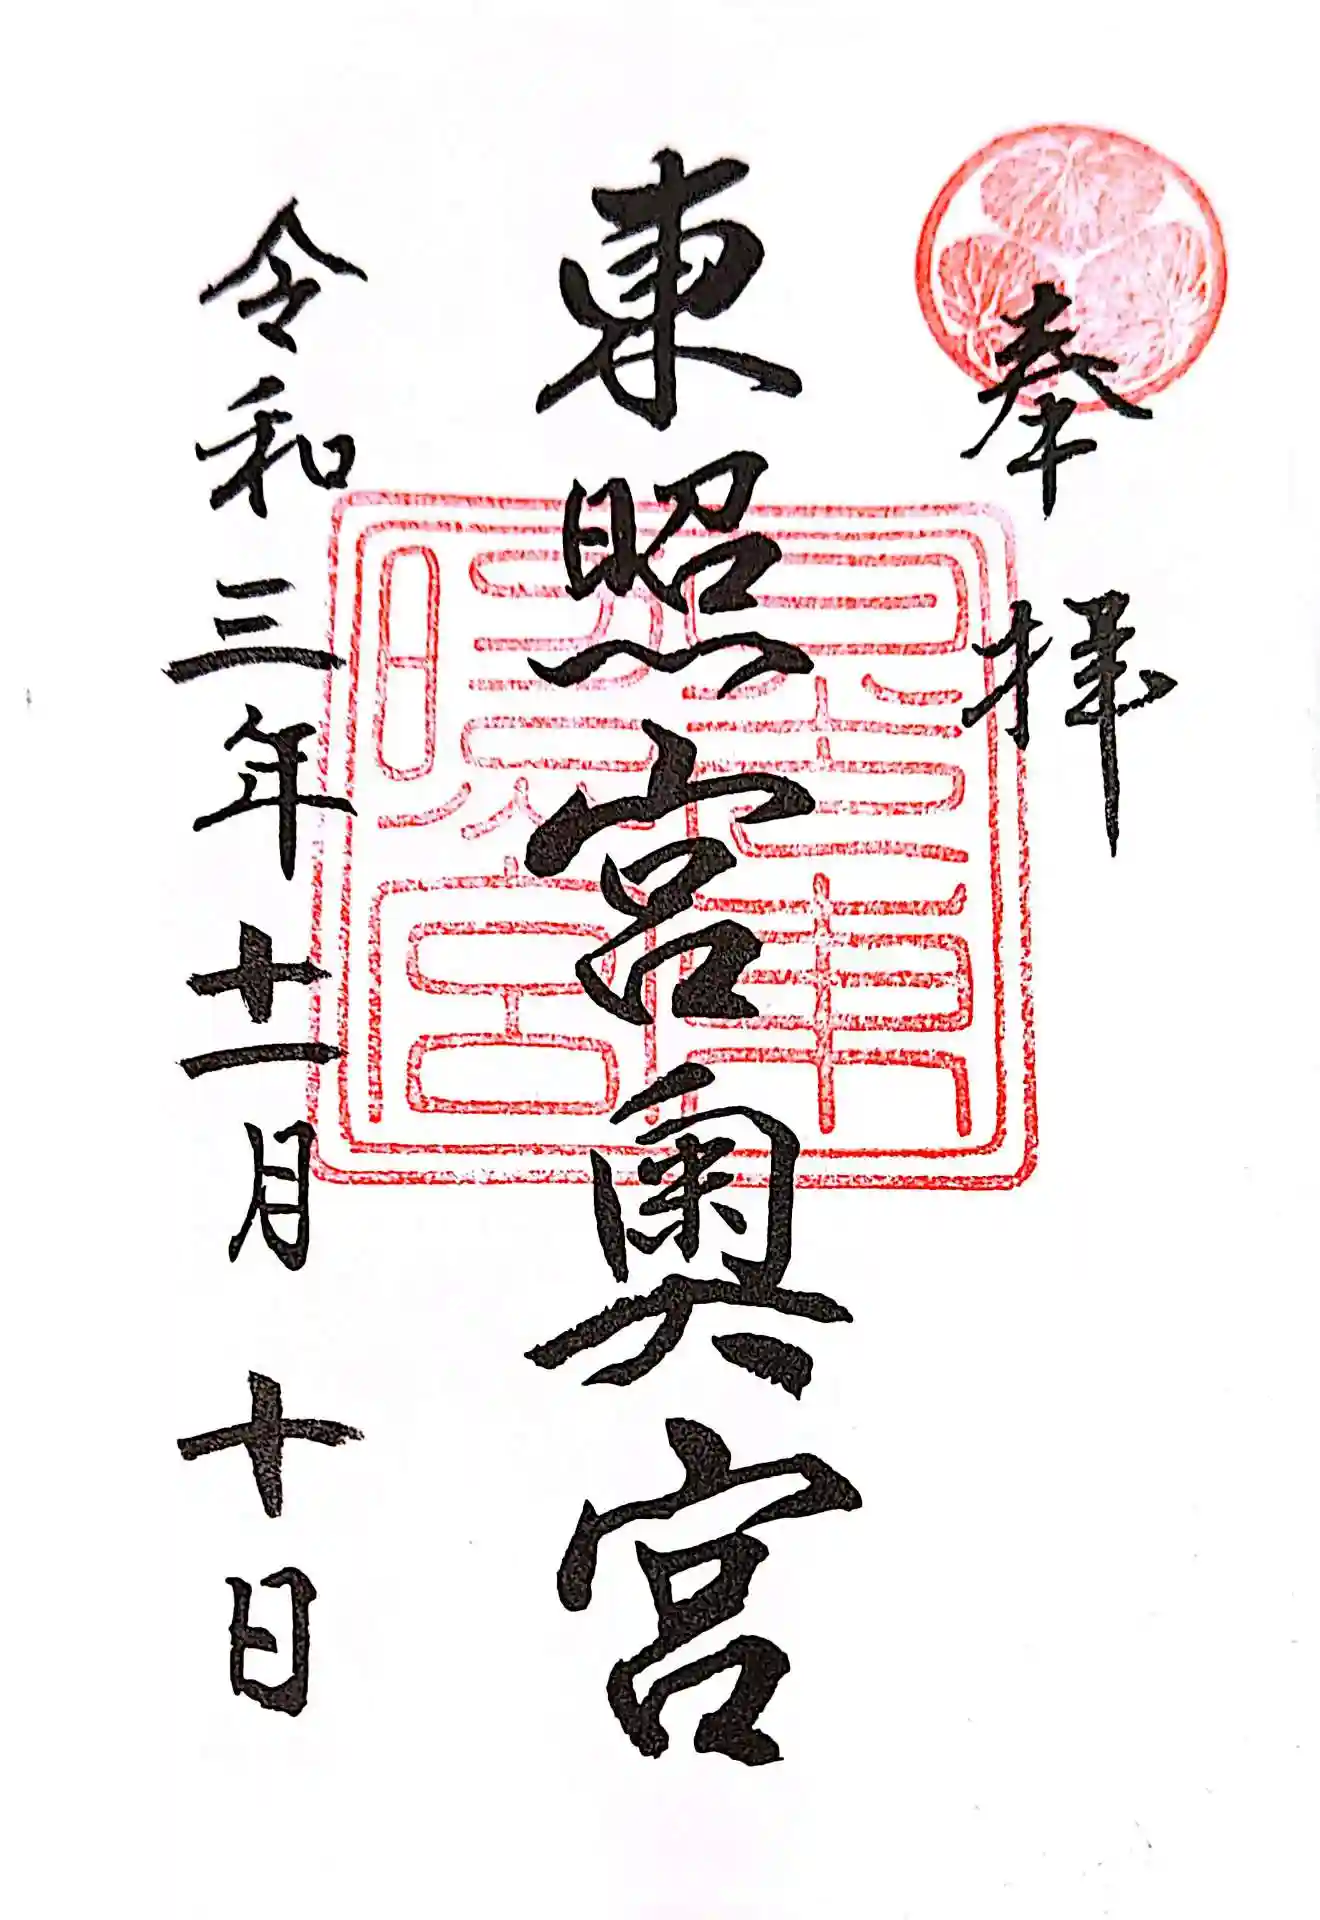 奉拝
東照宮奥宮
令和三年十一月十日